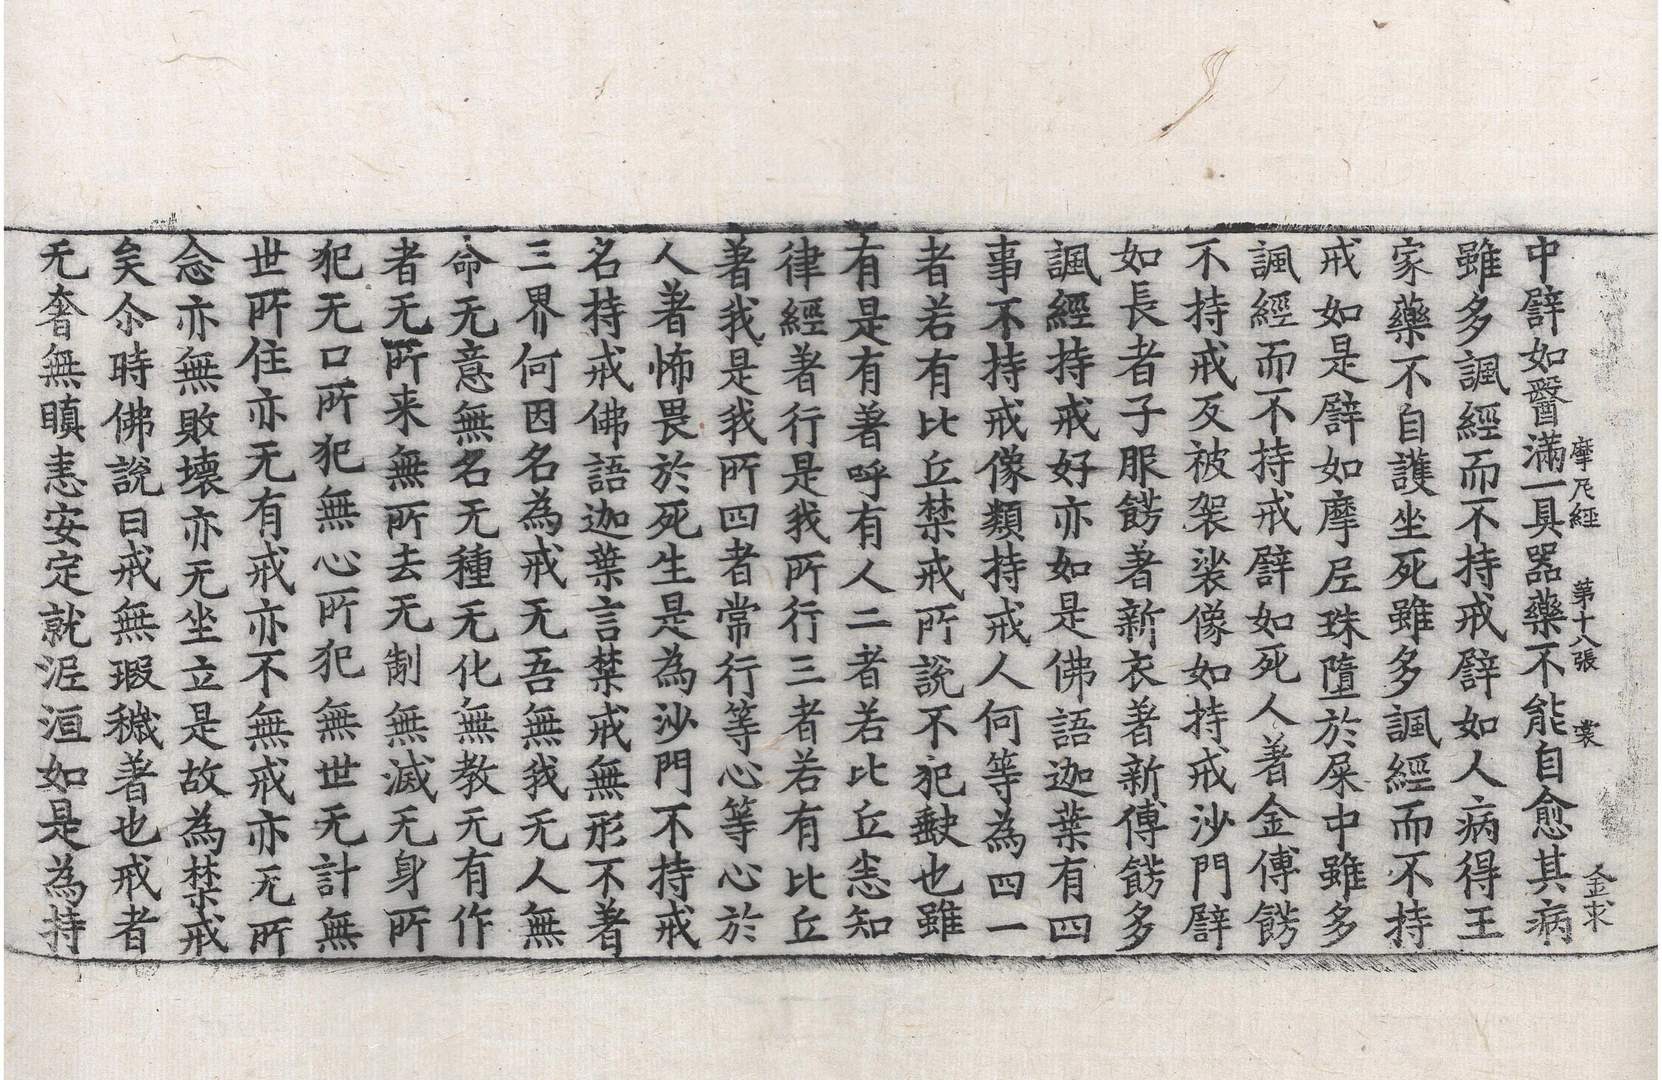 摩尼經 第十八張 裳 金求
中譬如醫滿一具器藥不能自愈其病
雖多諷經而不持戒譬如人病得王
家藥不自護坐死雖多諷經而不持
戒如是譬如摩尼珠墮於屎中雖多
諷經而不持戒譬如死人著金傅餝
不持戒反被袈裟像如持戒沙門譬
如長者子服餝著新衣著新傅餝多
諷經持戒好亦如是佛語迦葉有四
事不持戒像類持戒人何等為四一
者若有比丘禁戒所說不犯𡙇也雖
有是有著呼有人二者若比丘悉知
律經著行是我所行三者若有比丘
著我是我所四者常行等心等心於
人著怖畏於死生是為沙門不持戒
名持戒佛語迦葉言禁戒無形不著
三界何因名為戒无吾無我无人無
命无意無名无種无化無教无有作
者无所来無所去无制無滅无身所
犯无口所犯無心所犯無世无計無
世所住亦无有戒亦不無戒亦无所
念亦無敗壊亦无坐立是故為禁戒
矣尒時佛說曰戒無瑕穢著也戒者
无奢無瞋恚安定就泥洹如是為持